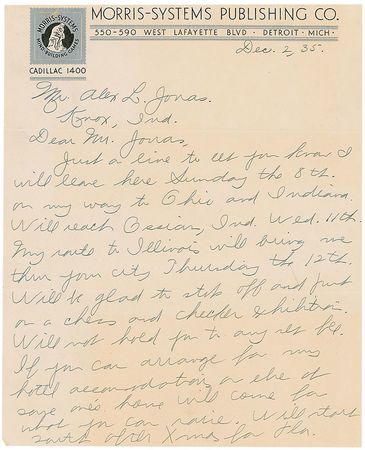 MORRIS-SYSTEMS PUBLISHING CO.
550-590 WEST LAFAYETTE BLVD · DETROIT · MICH ·
MORRIS-SYSTEMS
MIND-BUILDING GAMES
CADILLAC 1400
Dec. 2, 35.
Mr. Alex L. Jonas.
Knox, Ind.
Dear Mr. Jonas,
Just a line to let you know I
will leave here Sunday the 8th.
on my way to Ohio and Indiana.
Will reach Ossian, Ind. Wed. 11th.
My route to Illinois will bring me
thru your city Thursday the 12th.
Will be glad to stop off and put
on a chess and checker exhibition.
Will not hold you to any set fee.
If you can arrange for my
hotel accomodation, or else at
some one's home will come for
what you can raise. Will start
south after Xmas for Fla.